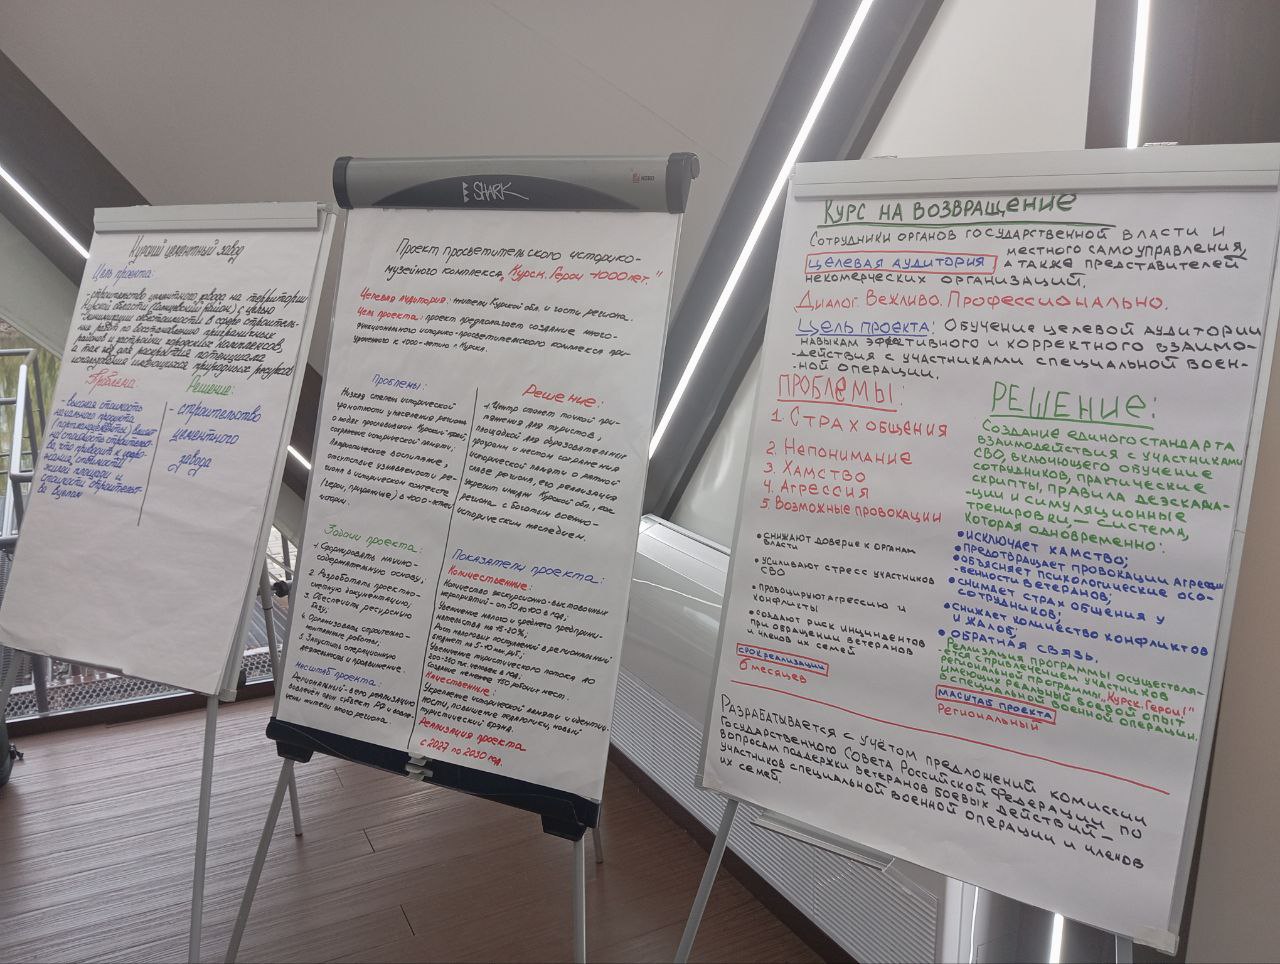 Курский цементный завод
Цель проекта:
- строительство цементного завода на территории
Курской области
с целью
минимизации
в сфере строитель-
ных работ по восстановлению приграничных
районов и застройки городских комплексов,
а так же для раскрытия потенциала
использования имеющихся природных ресурсов
Проблема:
- высокая стоимость
начального продукта
(портландцемента) влияет
на стоимость строительст-
ва, что приводит к удоро-
жанию стоимости
жилой площади и
стоимости строительст-
ва вцелом
Решение:
- строительство
цементного
завода
SHARK
Проект просветительского историко-
музейного комплекса „Курск. Герои - 1000 лет."
Целевая аудитория: жители Курской обл. и гости региона.
Цель проекта: проект предполагает создание много-
функционального историко-просветительского комплекса при-
уроченого к 1000-летию г. Курска.
Проблемы:
Низкая степень исторической
грамотности у населения региона
о людях прославивших Курский край;
сохранение исторической памяти;
патриотическое воспитание,
отсутствие узнаваемости ре-
гиона в историческом контексте
в 1000-летней
истории.
Решение:
Центр станет точкой при-
тяжения для туристов,
площадкой для образовательных
программ и местом сохранения
исторической памяти о ратной
славе региона, его реализация
укрепит имидж Курской обл., как
региона с богатым военно-
историческим наследием.
Задачи проекта:
1. Сформировать научно-
содержательную основу;
2. Разработать проектно-
сметную документацию;
3. Обеспечить ресурсную
базу;
4. Организовать строительно-
монтажные работы;
5. Запустить операционную
деятельность и продвижение.
Масштаб проекта:
Региональный - в его реализацию
вовлечён один субъект РФ и
жители этого региона.
Показатели проекта:
Количественные:
Количество экскурсионно-выставочных
мероприятий - от 50 до 100 в год;
Увеличение малого и среднего предприни-
мательства на 15-20%;
Рост налоговых поступлений в региональный
бюджет на 5-10 млн. руб.;
Увеличение туристического потока до
200-250 тыс. человек в год;
Создание не менее 150 рабочих мест.
Качественные:
Укрепление исторической памяти и идентич-
ности, повышение патриотизма, новый
туристический бренд.
Реализация проекта
с 2027 по 2030 год.
КУРС НА ВОЗВРАЩЕНИЕ
Сотрудники органов государственной власти и
местного самоуправления,
ЦЕЛЕВАЯ АУДИТОРИЯ а также представителей
некомерческих организаций.
Диалог. Вежливо. Профессионально.
Цель проекта: Обучение целевой аудитории
навыкам эффективного и корректного взаимо-
-действия с участниками специальной воен-
-ной операции.
ПРОБЛЕМЫ:
1. Страх общения
2. Непонимание
3. Хамство
4. Агрессия
5. Возможные провокации
• снижают доверие к органам
власти
• усиливают стресс участников
СВО
• провоцируют агрессию и
конфликты
• создают риск инциндентов
при обращении ветеранов
и членов их семей
СРОК РЕАЛИЗАЦИИ
6 месяцев
РЕШЕНИЕ:
Создание единого стандарта
взаимодействия с участниками
СВО, включающего обучение
сотрудников, практические
скрипты, правила деэскала-
-ции и симуляционные
тренировки, — система,
которая одновременно:
• исключает хамство;
• предотвращает провокации агрессии
• объясняет психологические осо-
-бенности ветеранов;
• снимает страх общения у
сотрудников;
• снижает количество конфликтов
и жалоб;
• обратная связь.
Реализация программы осуществля-
-ется с привлечением участников
региональной программы „Курск. Герои!"
имеющих реальный боевой опыт
в специальной военной операции.
МАСШТАБ ПРОЕКТА
Региональный
Разрабатывается с учётом предложений комиссии
Государственного Совета Российской Федерации по
вопросам поддержки ветеранов боевых действий —
участников специальной военной операции и членов
их семей.